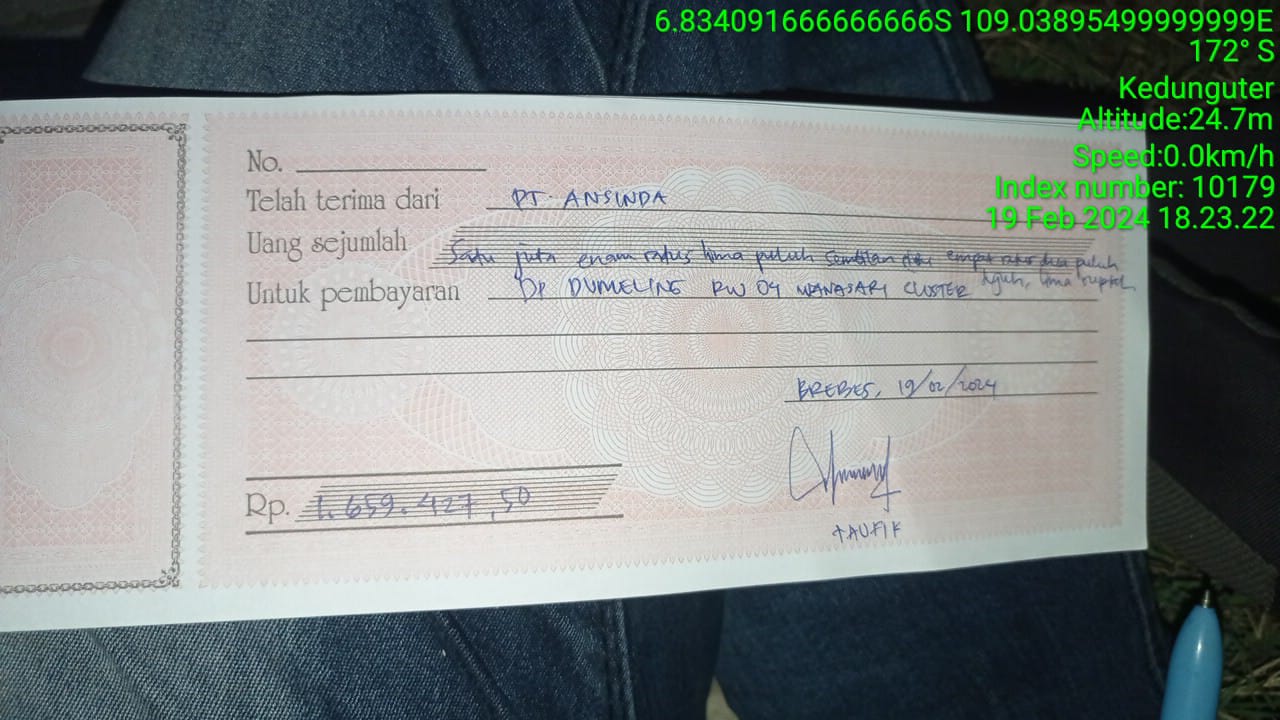 6.834091666666666S 109.03895499999999E
172° S
Kedunguter
Altitude:24.7m
Speed:0.0km/h
Index number: 10179
19 Feb 2024 18.23.22
No.
Telah terima dari PT. ANSINDA
Uang sejumlah Satu juta enam ratus lima puluh sembilan ribu empat ratus dua puluh
tujuh, lima rupiah
Untuk pembayaran DP DUMELING RW 04 WANASARI CLUSTER
BREBES, 19/02/2024
Rp. 1.659.427,50
TAUFIK